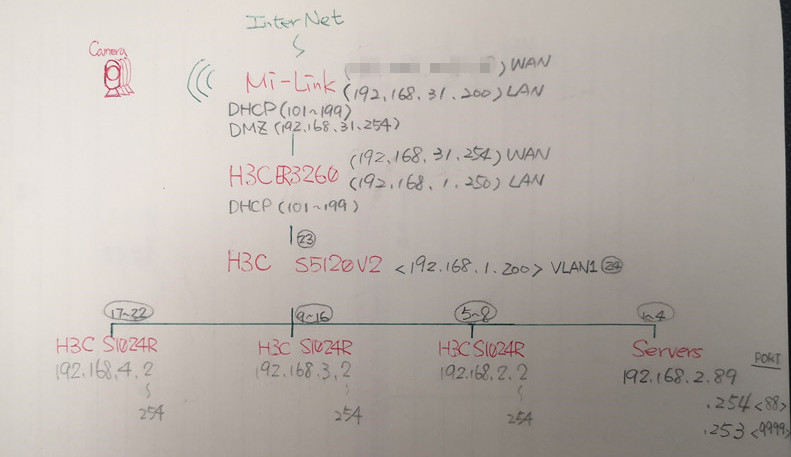 InterNet
Camera
Mi-Link
( ) WAN
(192.168.31.200) LAN
DHCP (101~199)
DMZ (192.168.31.254)
H3C ER3260
(192.168.31.254) WAN
(192.168.1.250) LAN
DHCP (101~199)
23
H3C S5120V2 <192.168.1.200> VLAN1 24
17~22 9~16 5~8 1~4
H3C S1024R H3C S1024R H3C S1024R Servers
192.168.4.2 192.168.3.2 192.168.2.2 192.168.2.89 PORT
254 254 254 .254 <88>
.253 <9999>